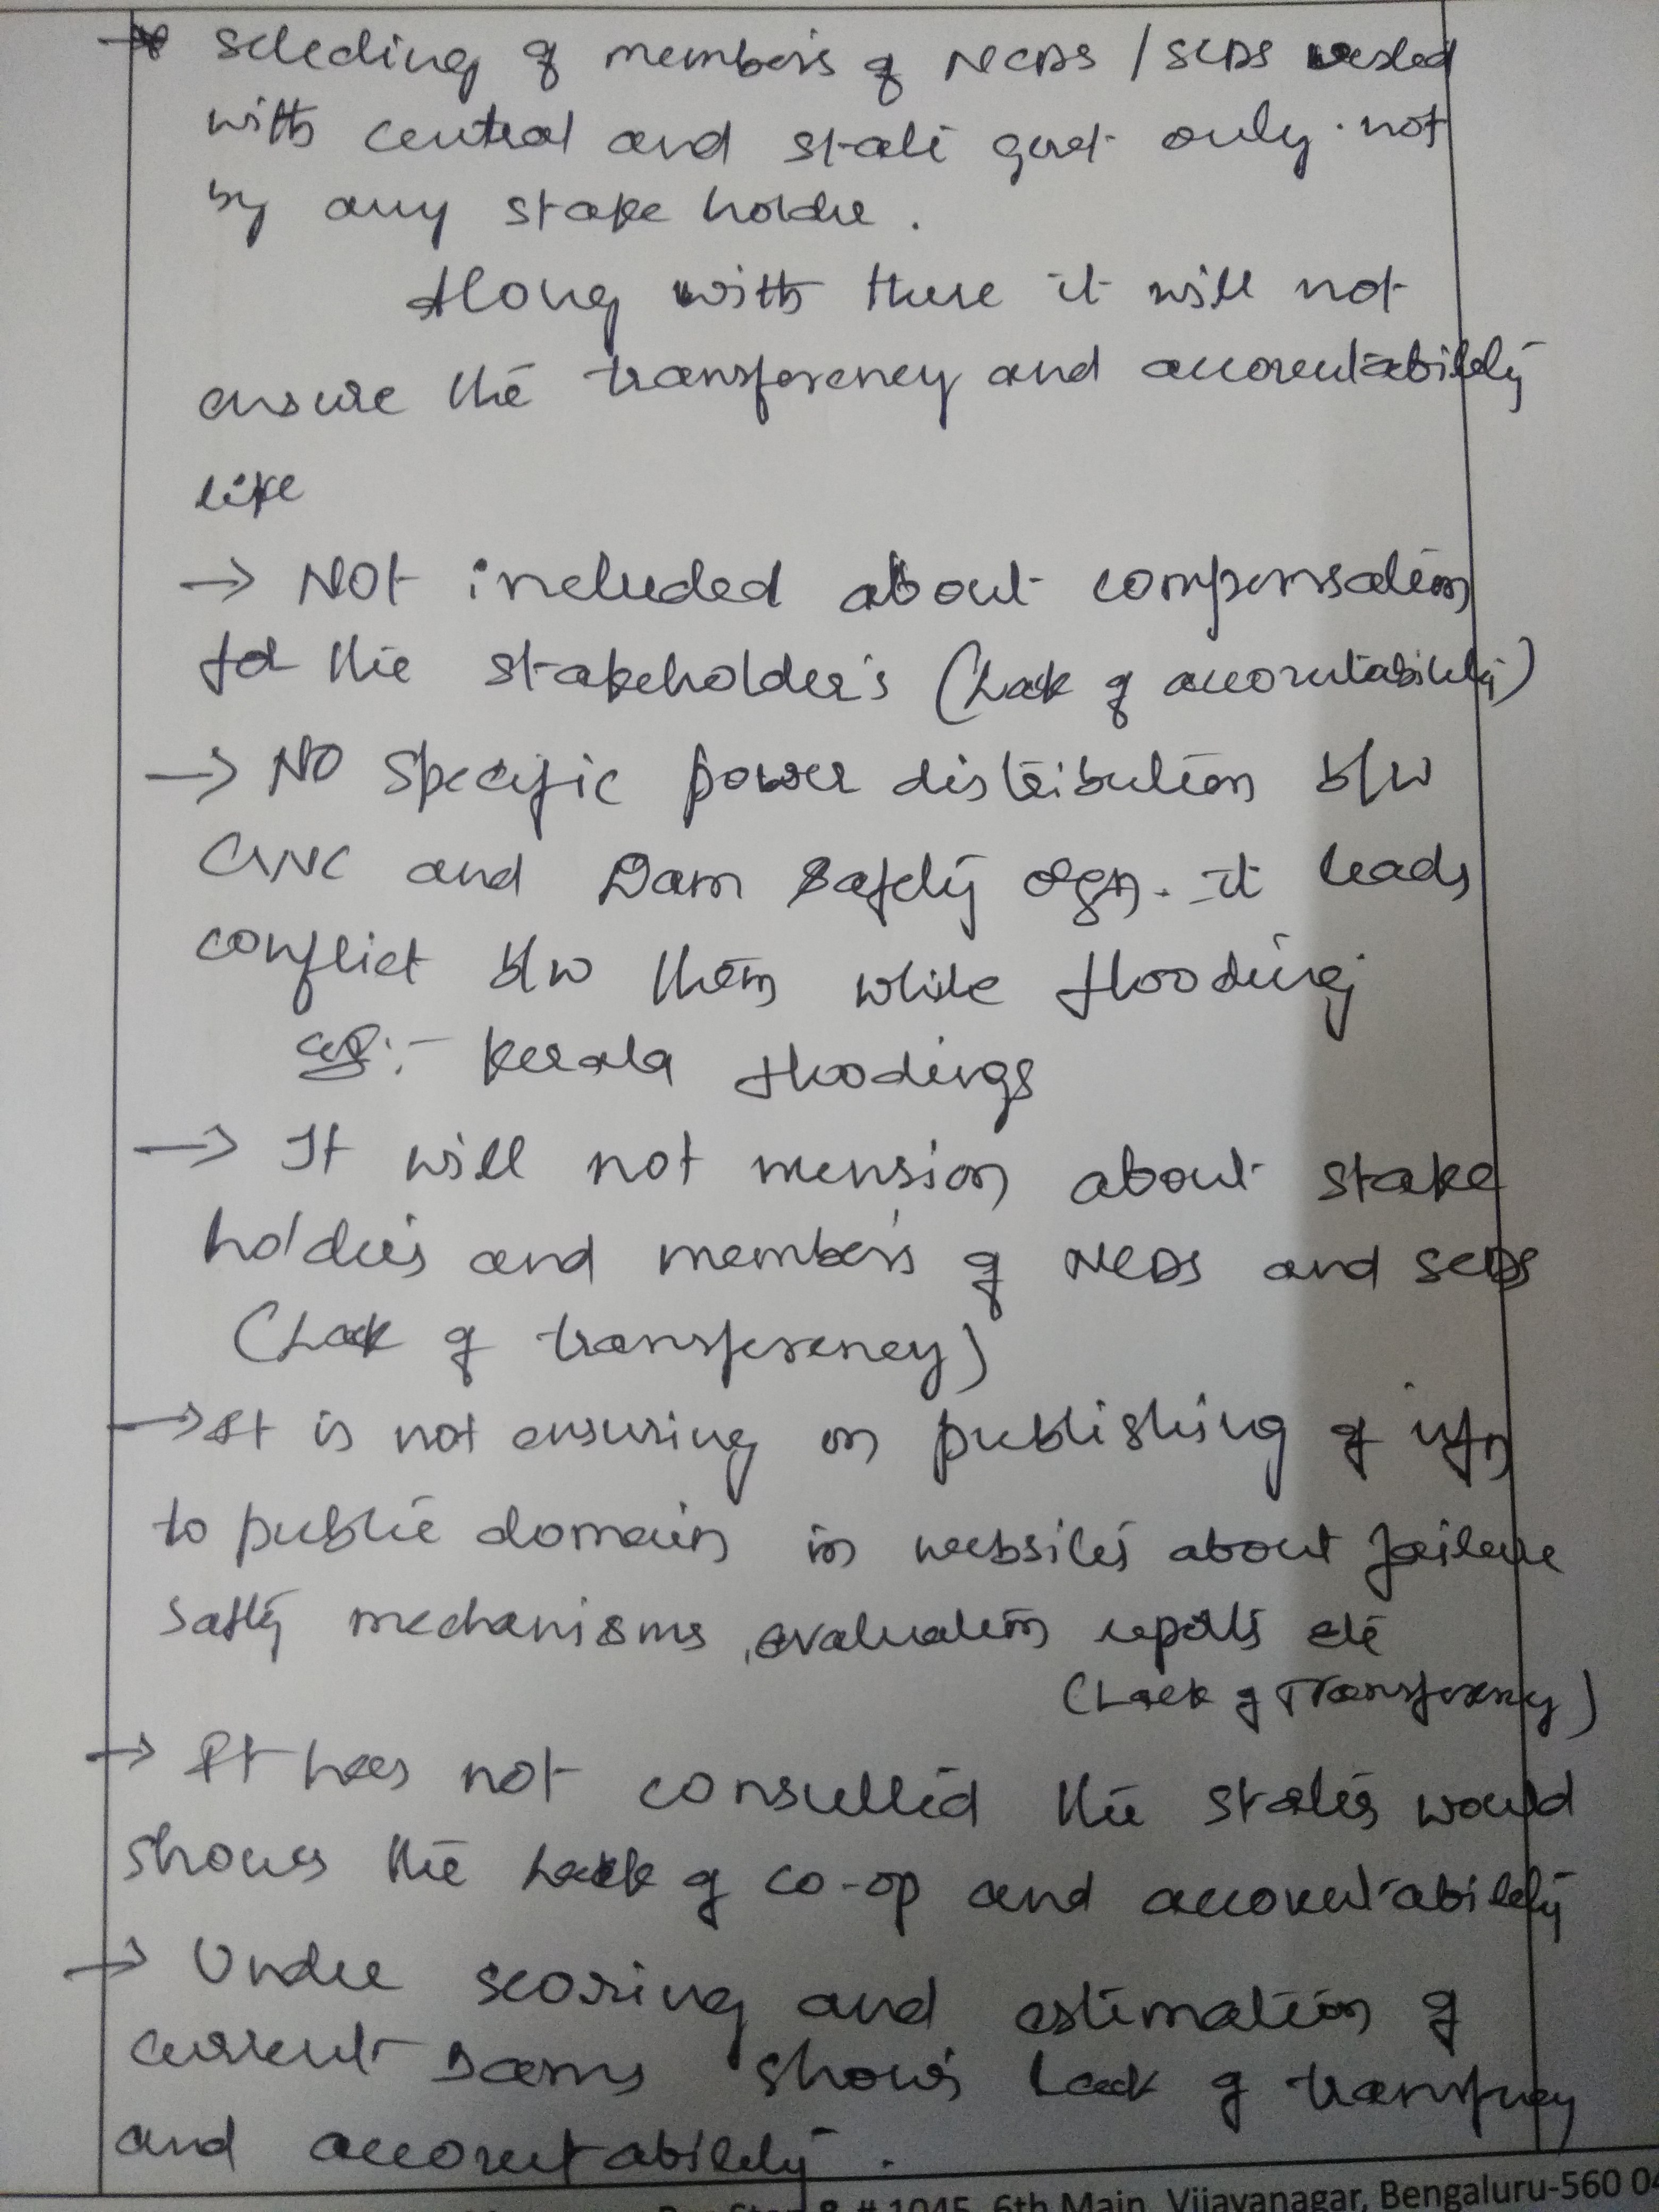 * Selecting of members of NCDS / SCDS vested
with central and state govt only not
by any stake holder.
Along with there it will not
ensure the transferency and accountability
like
→ Not included about compensation
for the stakeholder's (Lack of accountability)
→ No specific power distribution b/w
CWC and Dam Safety orgn. it leads
conflict b/w them while flooding
eg:- Kerala floodings
→ It will not mension about stake
holders and members of NCDS and SCDS
(Lack of transferency)
→ It is not ensuring on publishing of infn
to public domain in websites about failure
safty mechanisms, evaluation reports etc
(Lack of Transferency)
→ It has not consulted the states would
shows the lack of co-op and accountability
→ Under scoring and estimation of
current Dams shows lack of transfrency
and accountability.
8 # 1045, 6th Main, Vijayanagar, Bengaluru-560 04